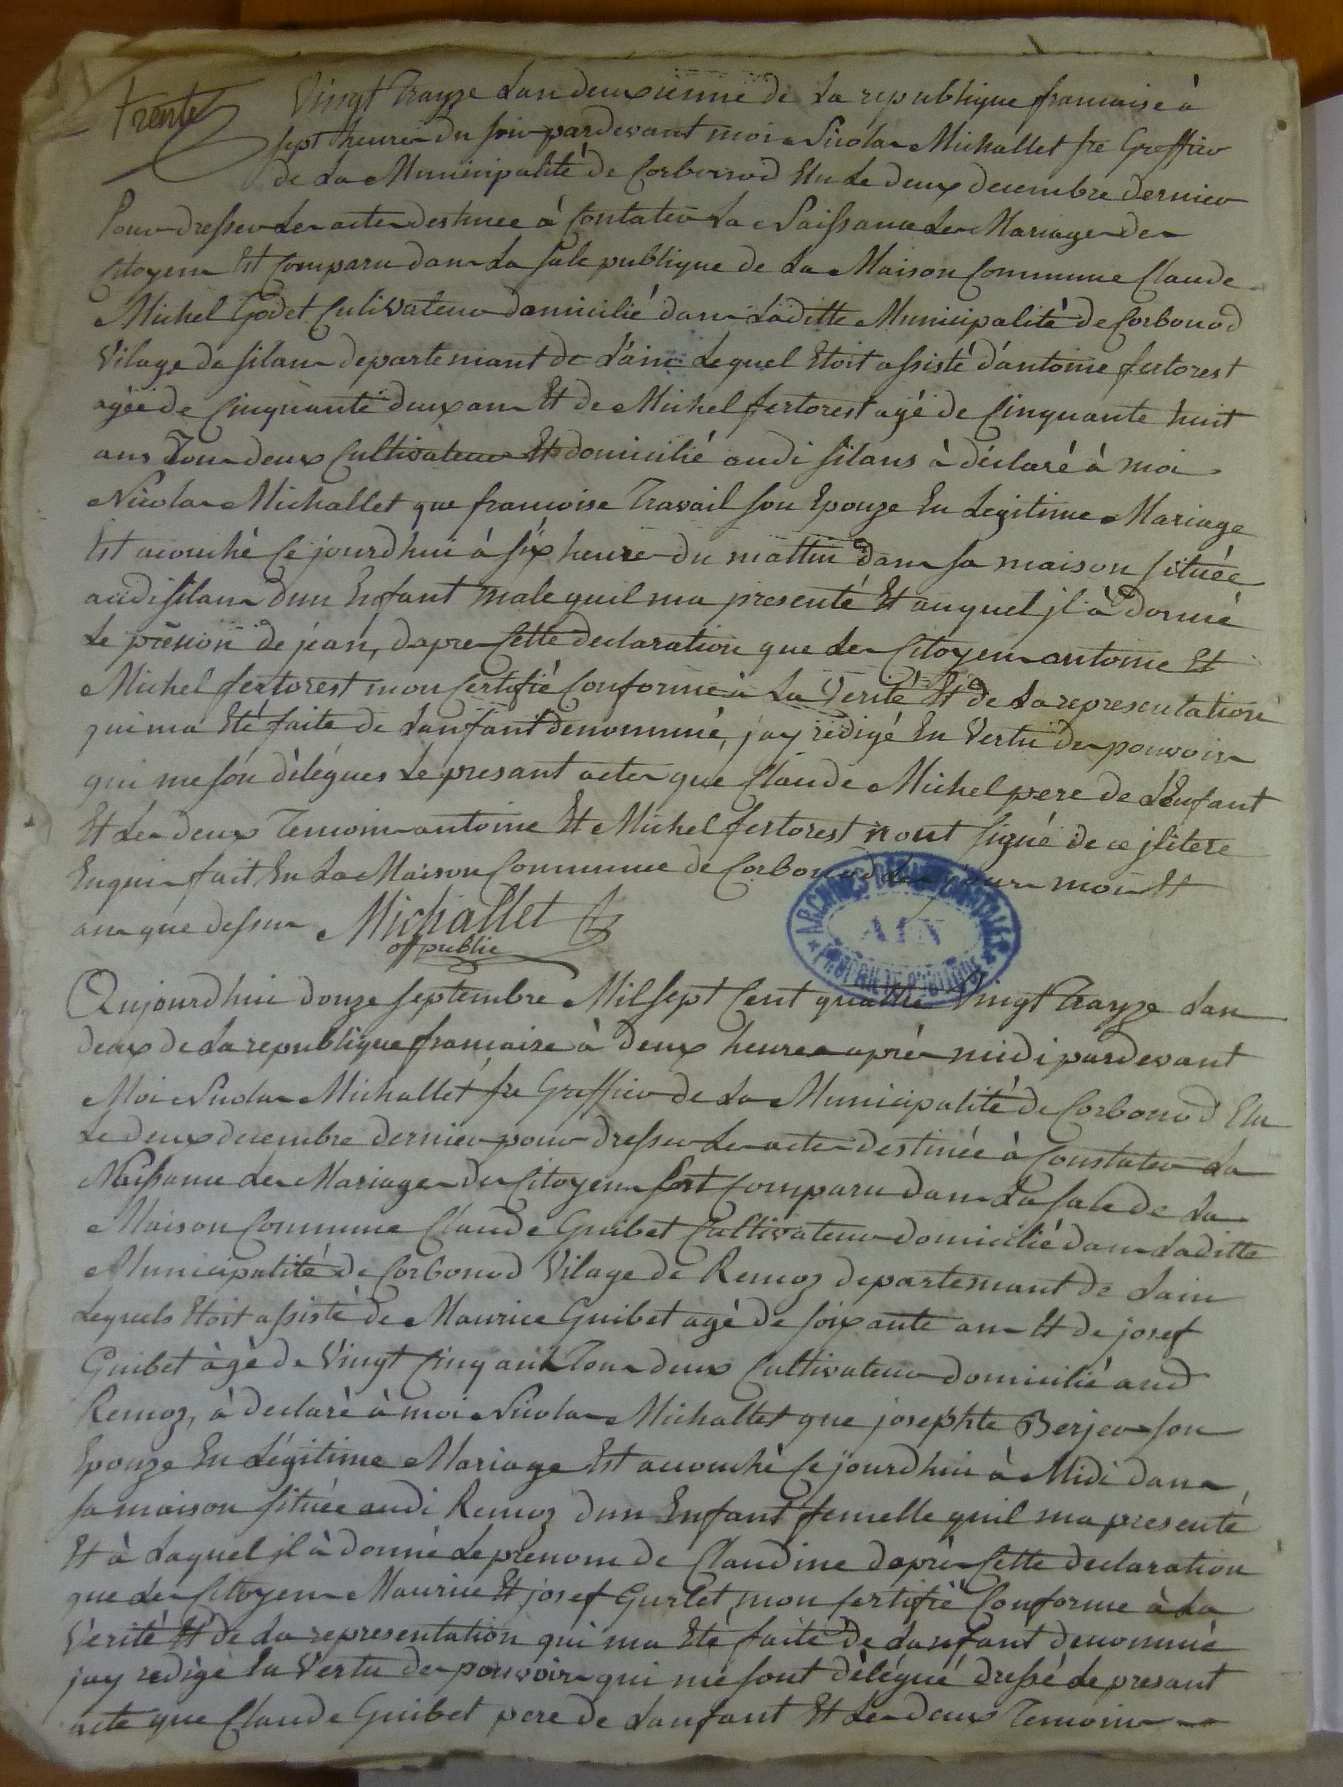 trente
Vingt Trayze Lan deuxienne de La republique francaise à
sept heures du soir pardevant moi Nicolas Michallet fre Greffier
de La Municipalité de Corbonod Elu Le deux decembre dernier
Pour dresser Les actes destinee à Contater La Naissance Les Mariages des
Citoyens Est Comparu dans La sale publique de La Maison Commune Claude
Michel Godet Culivateur domicilié dans Laditte Municipalité de Corbonod
Vilage de silans departemant de L'ain Lequel Etoit assisté d'antoine fertorest
agée de Cinquante deux ans Et de Michel fertorest agé de Cinquante huit
ans Tous deux Cultivateurs Et domicilié audi silans à déclaré à moi
Nicolas Michallet que francoise Travail son Epouze En Legitime Mariage
Est acouché Ce jourdhui à six heures du mattin dans sa maison située
audi silans dun Enfant male quil ma presenté Et auquel jl à donné
Le prénon de jean, dapres Cette declaration que Les Citoyens antoine Et
Michel fertorest mon Certifié Conforme à La Verité Et de La representation
qui ma Eté faite de Lanfant denommé, jay redigé En Vertu des pouvoirs
qui me son délégues Le presant acte que Claude Michel pere de LEnfant
Et Les deux Temoins antoine Et Michel fertorest nont signé de ce jlitere
Enquis fait En La Maison Commune de Corbonod Les jour mois Et
an que dessus Michallet
of public
ARCHIVES DEPARTEMENTALES
AIN
PROPRIETE PUBLIQUE
Aujourdhui douze septembre Mil sept Cent quattre Vingt Trayze Lan
deux de La republique francaise à deux heures après midi pardevant
Moi Nicolas Michallet fre Greffier de La Municipalité de Corbonod Elu
Le deux decembre dernier pour dresser Les actes destinée à Constater La
Naissance Les Mariages des Citoyens Est Comparu dans La sale de La
Maison Commune Claude Guibet Cultivateur domicilié dans Laditte
Municipalité de Corbonod Vilage de Remoz departemant de Lain
Lequels Etoit assisté de Maurice Guibet agé de soixante ans Et de josef
Guibet àgé de Vingt Cinq ans Tous deux Cultivateur domicilié aud
Remoz, à declaré à moi Nicolas Michallet que josephte Berjer son
Epouze En Légitime Mariage Est acouché Ce jourdhui à Midi dans
sa maison située audi Remoz dun Enfant femelle quil ma presenté
Et à Laquel jl à donné Le prenom de Claudine daprès Cette declaration
que Les Citoyens Maurice Et josef Guibet mon Certifié Conforme à La
Verité Et de La representation qui ma Eté faite de Lanfant denommé
jay redigé En Vertu des pouvoirs qui me sont délégué dressé Le presant
acte que Claude Guibet pere de Lanfant Et Les deux Temoins